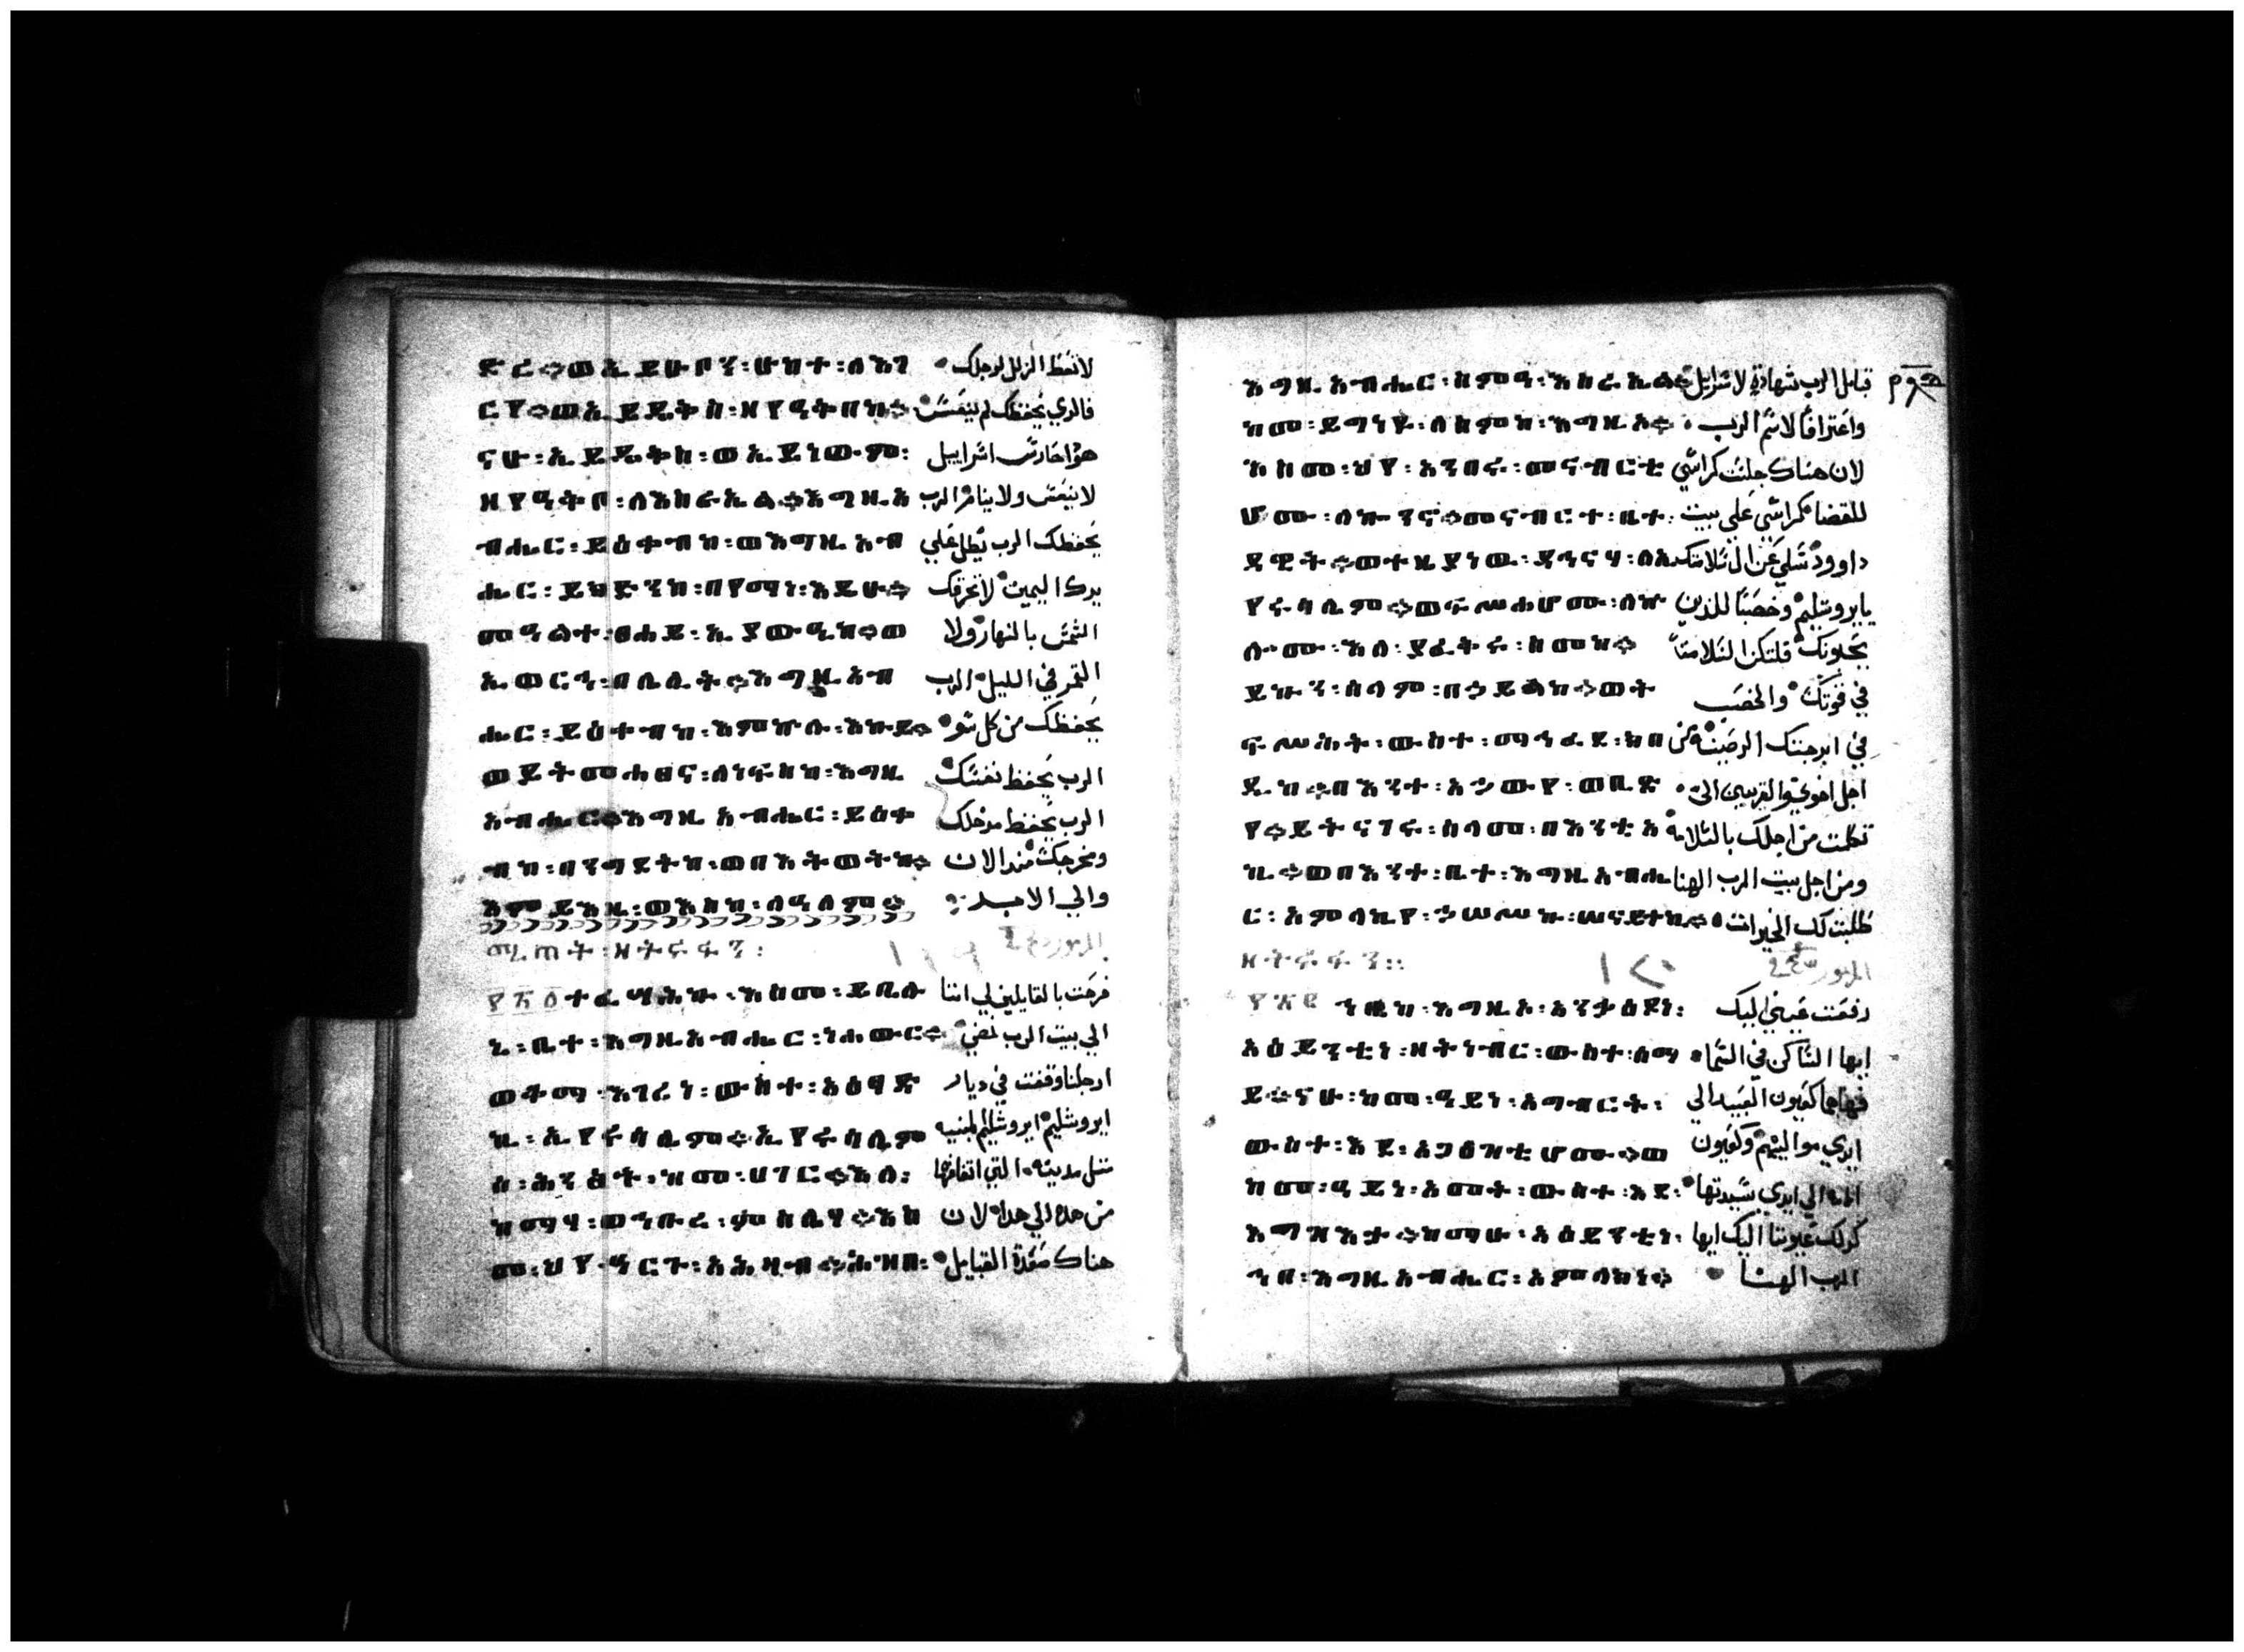 ድረ፨ወኢይሁቦን፡ሁከተ፡ለእገ لا تعط الزلل لرجلك
ርየ፨ወኢይደቅስ፡ዘየዓቅበከ፨ فالدي يحفظك لم ينعس
ናሁ፡ኢይዴቅስ፡ወኢይነውም፡ هودا حارس اسراييل
ዘየዓቅቦ፡ለእስራኤል፨እግዚአ لا ينعس ولا ينام الرب
ብሔር፡ይዕቀብከ፡ወእግዚአብ يحفظك الرب يظل علي
ሔር፡ይክድንከ፡በየማነ፡እዴሁ፨ يدك اليمين لا تحرقك
መዓልተ፡ፀሐይ፡ኢያውዒከ፨ወ الشمس بالنهار ولا
ኢወርኅ፡በሌሊት፨እግዚአብ القمر في الليل الرب
ሔር፡ይዕቀብከ፡እምኵሉ፡እኩይ፨ يحفظك من كل سو
ወይትመሐፀና፡ለነፍስከ፡እግዚ الرب يحفظ نفسك
አብሔር፨እግዚአብሔር፡ይዕቀ الرب يحفظ مدخلك
ብከ፡በንግደትከ፡ወበእትወትከ፨ ومخرجك مند الان
እምይእዜ፡ወእስከ፡ለዓለም፨ والي الابد
ማኅጠት፡ዘተፋፋን፡ المزمور ١٢١
፻፳፩ ተፈሣሕኩ፡እስመ፡ይቤሉ فرحت بالقايلين لي اننا
ኒ፡ቤተ፡እግዚአብሔር፡ነሐውር፨ الي بيت الرب نمضي
ወቆማ፡እገሪነ፡ውስተ፡አዕፃድ ارجلنا وقفت في ديار
ኪ፡ኢየሩሳሌም፨ኢየሩሳሌም ايروشليم ايروشليم المبنيه
ስ፡ሕንፅት፡ከመ፡ሀገር፨እለ፡ مثل مدينه التي اتفاقها
ከማሃ፡ወኅቡረ፡ምስሌሃ፨እስ من حده الي حدا لان
መ፡ህየ፡ዓርጉ፡አሕዛብ፨ሕዝበ፡ هناك صعدة القبايل
እግዚአብሔር፡ስምዓ፡ለእስራኤል፨ قبايل الرب شهادة لاسراييل
ከመ፡ይግነዩ፡ለስምከ፡እግዚኦ፨ واعترافا لاسم الرب
እስመ፡ህየ፡አንበሩ፡መናብርቲ لان هناك جلست كراسي
ሆሙ፡ለኰንኖ፨መናብርተ፡ቤተ፡ للقضا كراسي علي بيت
ዳዊት፨ወተዜያነው፡ዳኅናሃ፡ለኢ داوود سلي عن السلامتك
የሩሳሌም፨ወፍሥሐሆሙ፡ለኵ يا يروشليم وخصبا للدين
ሎሙ፡እለ፡ያፈቅሩ፡ስመከ፨ يحبونك فلتكن السلامتا
ይኩን፡ሰላም፡በኃይልከ፨ወት في قوتك والخصب
ፍሥሕት፡ውስተ፡ማኅፈደ፡ክበ في ابرجنتك الرصينه من
ዲከ፨በእንተ፡አኃውየ፡ወቢጽ اجل اخوتي والقريبين الي
የ፨ይትናገሩ፡ሰላመ፡በእንቲአ تكلمت من اجلك بالسلامه
ኪ፨ወበእንተ፡ቤተ፡እግዚአብሔ ومن اجل بيت الرب الهنا
ር፡አምላኪየ፡ኃሠሥኩ፡ሠናይተኪ፨ طلبت لك الخيرات
ዘተፋፋን፡፡ المزمور ١٢٢
፻፳፪ ኀቤከ፡እግዚአ፡አንቃዕደነ፡ رفعت عيني اليك
አዕይንቲነ፡ዘትነብር፡ውስተ፡ሰማ ايها الساكن في السما
ይ፨ናሁ፡ከመ፡ዓይነ፡አግብርት፡ فهاهما كعيون العبيد الي
ውስተ፡እደ፡አጋዕዝቲሆሙ፨ወ ايدي مواليهم وكعيون
ከመ፡ዓይነ፡አመት፡ውስተ፡እደ፡ الامه الي ايدي سيدتها
እግዝእታ፨ከማሁ፡አዕይንቲነ፡ كدلك عيوننا اليك ايها
ኀበ፡እግዚአብሔር፡አምላክነ፨ الرب الهنا